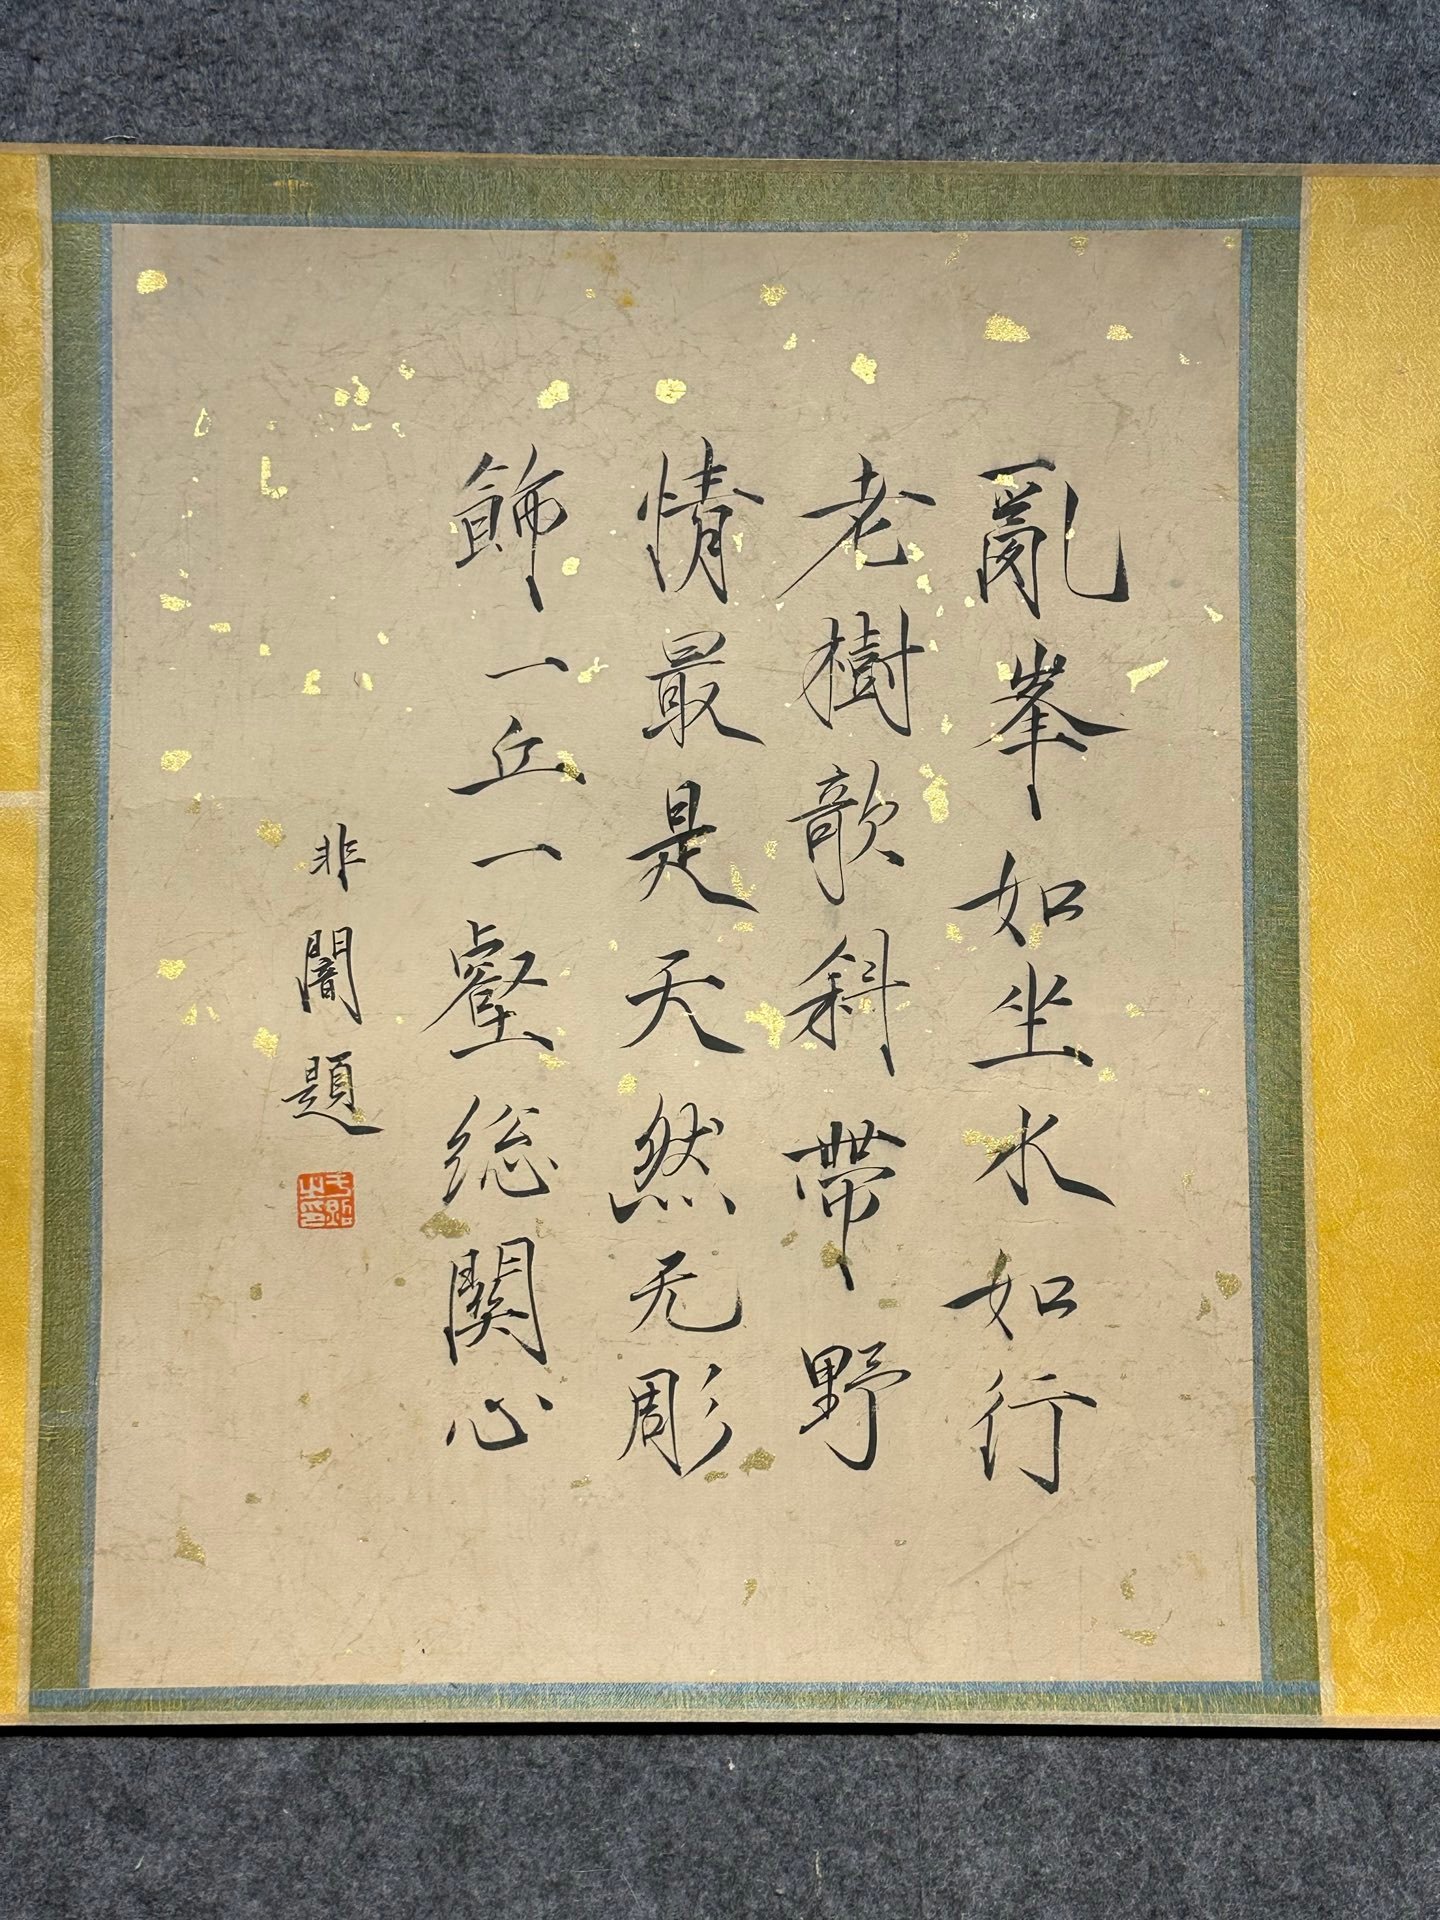 亂峯如坐水如行
老樹欹斜帶野
情最是天然无彫
飾一丘一壑総関心
非闇題
于照之印